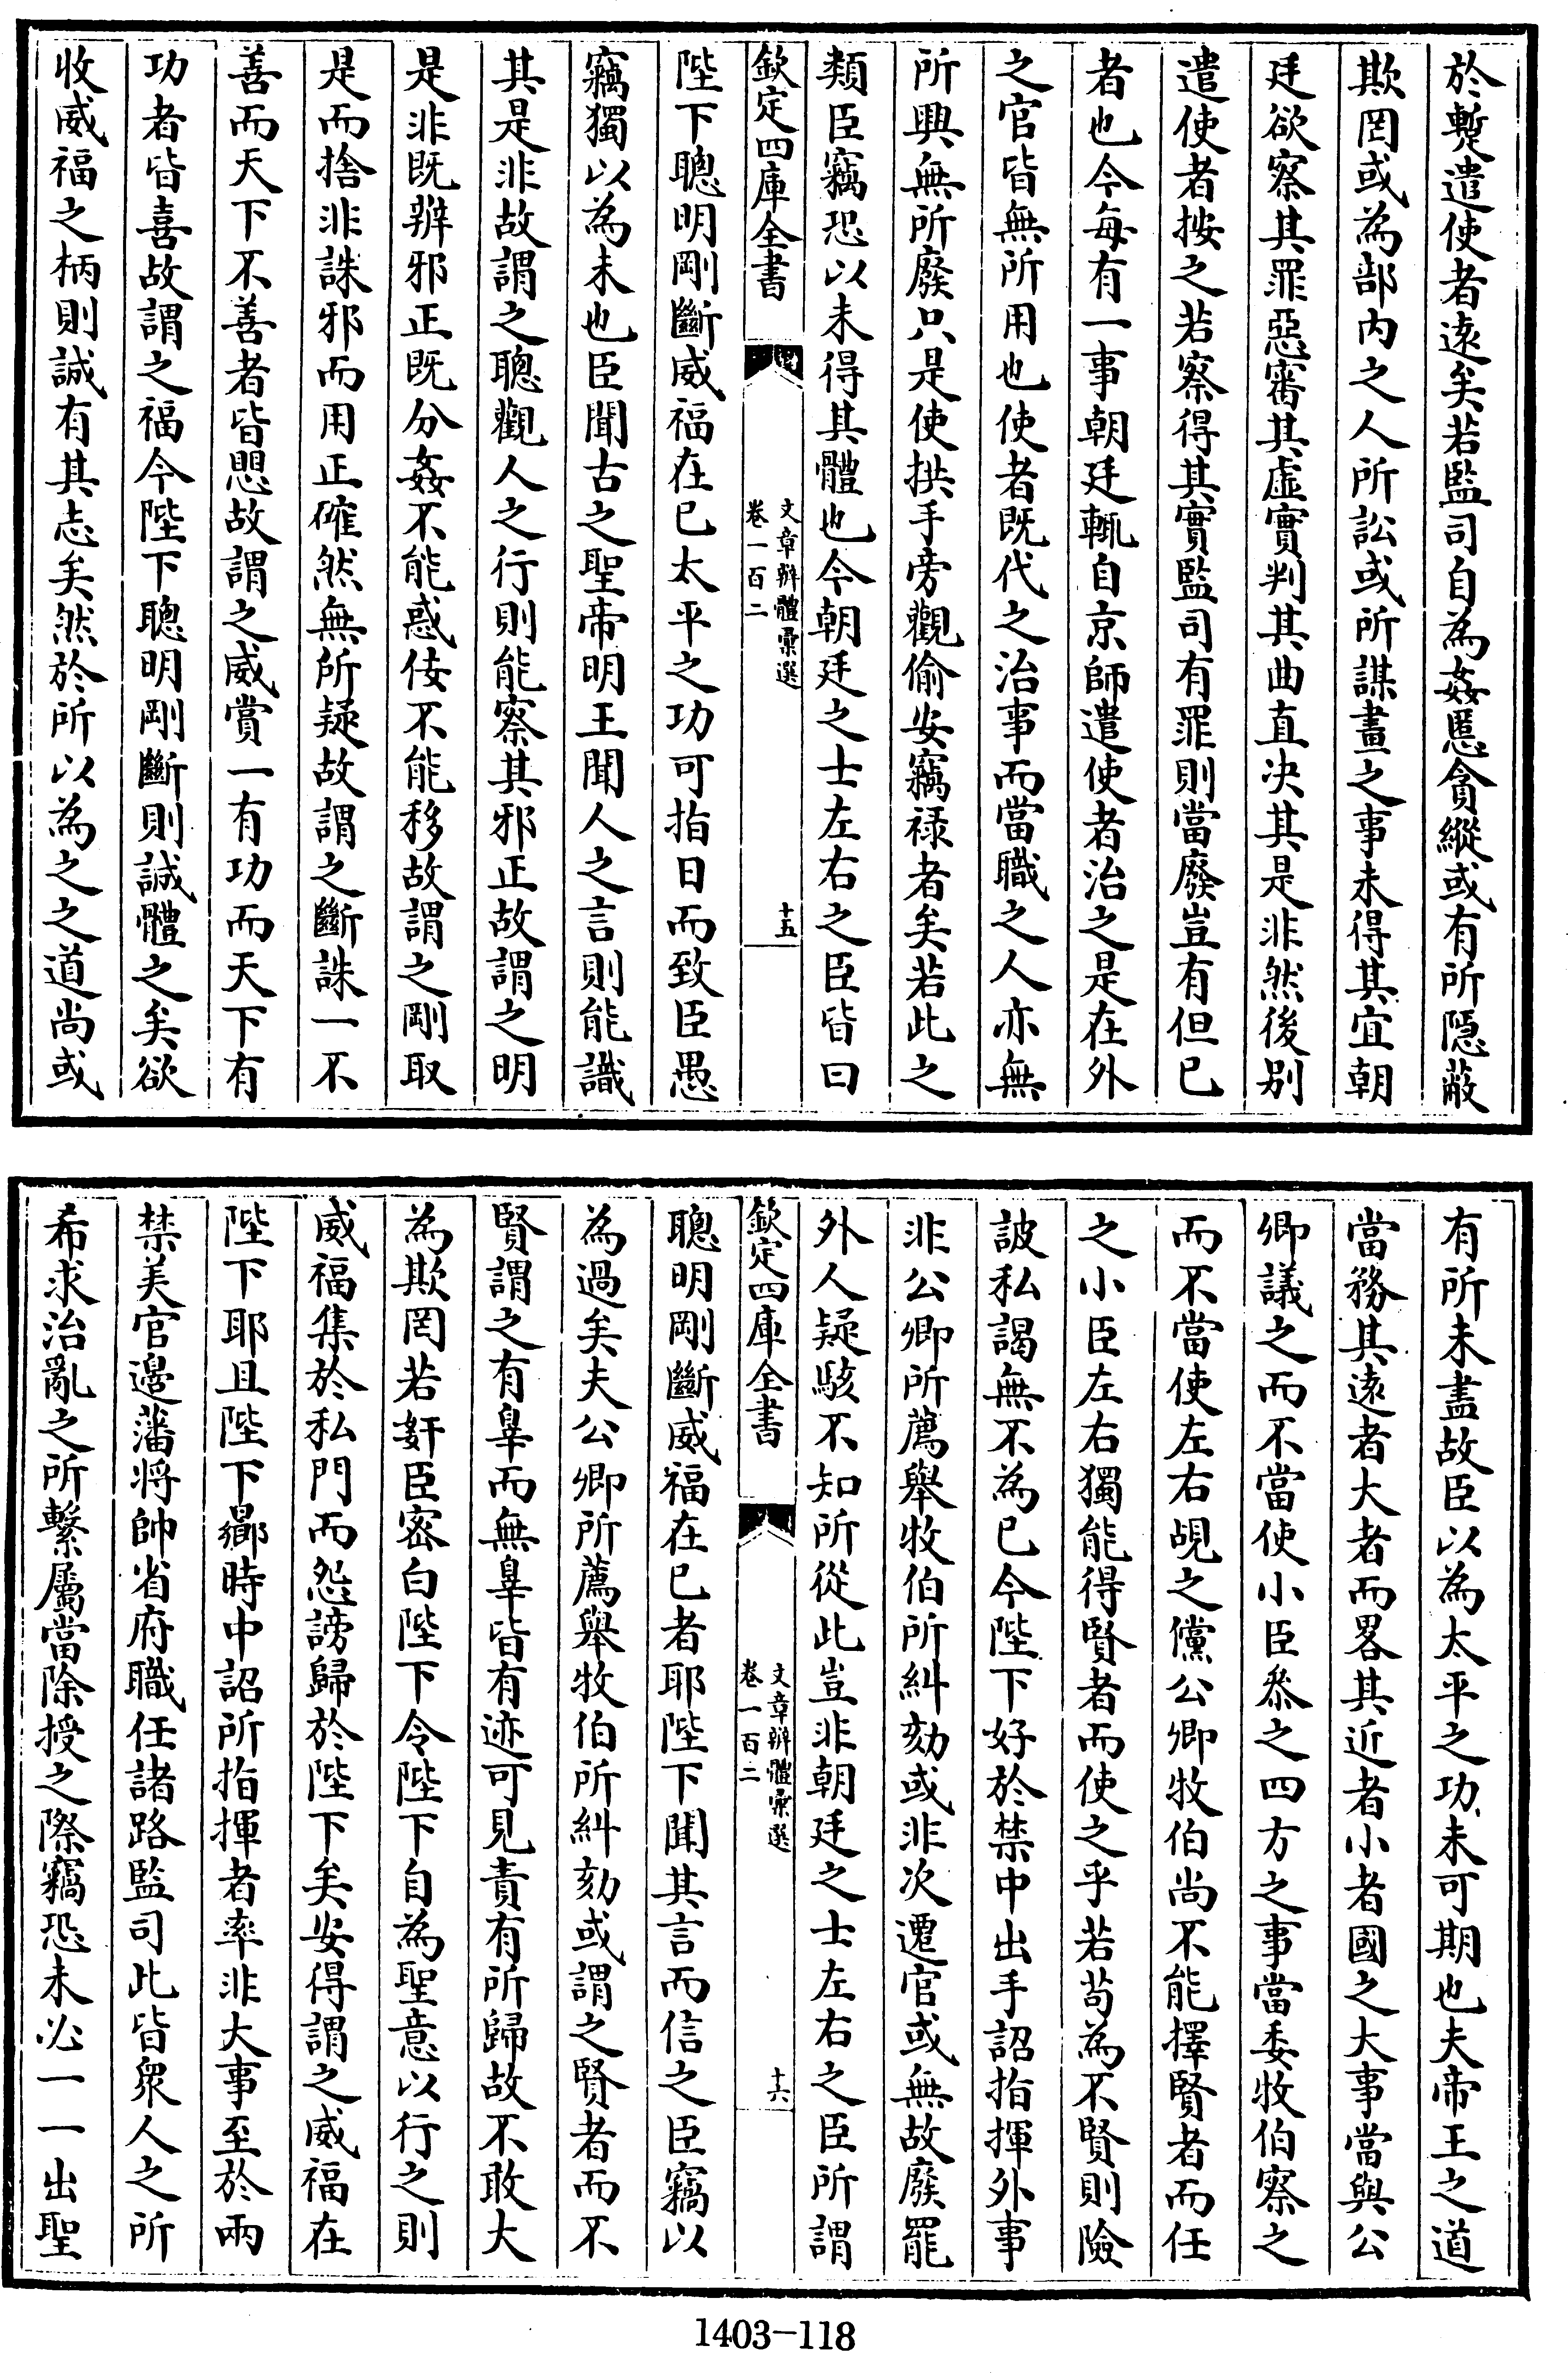 於蹔遣使者逺矣若監司自為姦慝貪縱或有所隠蔽
欺罔或為部内之人所訟或所謀畫之事未得其宜朝
廷欲察其罪惡審其虚實判其曲直决其是非然後别
遣使者按之若察得其實監司有罪則當廢豈有但已
者也今每有一事朝廷輒自京師遣使者治之是在外
之官皆無所用也使者既代之治事而當職之人亦無
所興無所廢只是使拱手旁觀偷安竊禄者矣若此之
類臣竊恐以未得其體也今朝廷之士左右之臣皆曰
欽定四庫全書
文章辨體彚選
卷一百二
十五
陛下聰明剛斷威福在已太平之功可指日而致臣愚
竊獨以為未也臣聞古之聖帝明王聞人之言則能識
其是非故謂之聰觀人之行則能察其邪正故謂之明
是非既辨邪正既分姦不能惑佞不能移故謂之剛取
是而捨非誅邪而用正確然無所疑故謂之斷誅一不
善而天下不善者皆愳故謂之威賞一有功而天下有
功者皆喜故謂之福今陛下聰明剛斷則誠體之矣欲
收威福之柄則誠有其志矣然於所以為之之道尚或
有所未盡故臣以為太平之功未可期也夫帝王之道
當務其逺者大者而畧其近者小者國之大事當與公
卿議之而不當使小臣叅之四方之事當委牧伯察之
而不當使左右覘之儻公卿牧伯尚不能擇賢者而任
之小臣左右獨能得賢者而使之乎若苟為不賢則險
詖私謁無不為已今陛下好於禁中出手詔指揮外事
非公卿所薦舉牧伯所糾劾或非次遷官或無故廢罷
外人疑駭不知所從此豈非朝廷之士左右之臣所謂
欽定四庫全書
文章辨體彚選
卷一百二
十六
聰明剛斷威福在已者耶陛下聞其言而信之臣竊以
為過矣夫公卿所薦舉牧伯所糾劾或謂之賢者而不
賢謂之有辠而無辠皆有迹可見責有所歸故不敢大
為欺罔若姧臣密白陛下令陛下自為聖意以行之則
威福集於私門而怨謗歸於陛下矣安得謂之威福在
陛下耶且陛下曏時中詔所指揮者率非大事至於兩
禁美官邊藩將帥省府職任諸路監司此皆衆人之所
希求治亂之所繫屬當除授之際竊恐未必一一出聖
1403-118